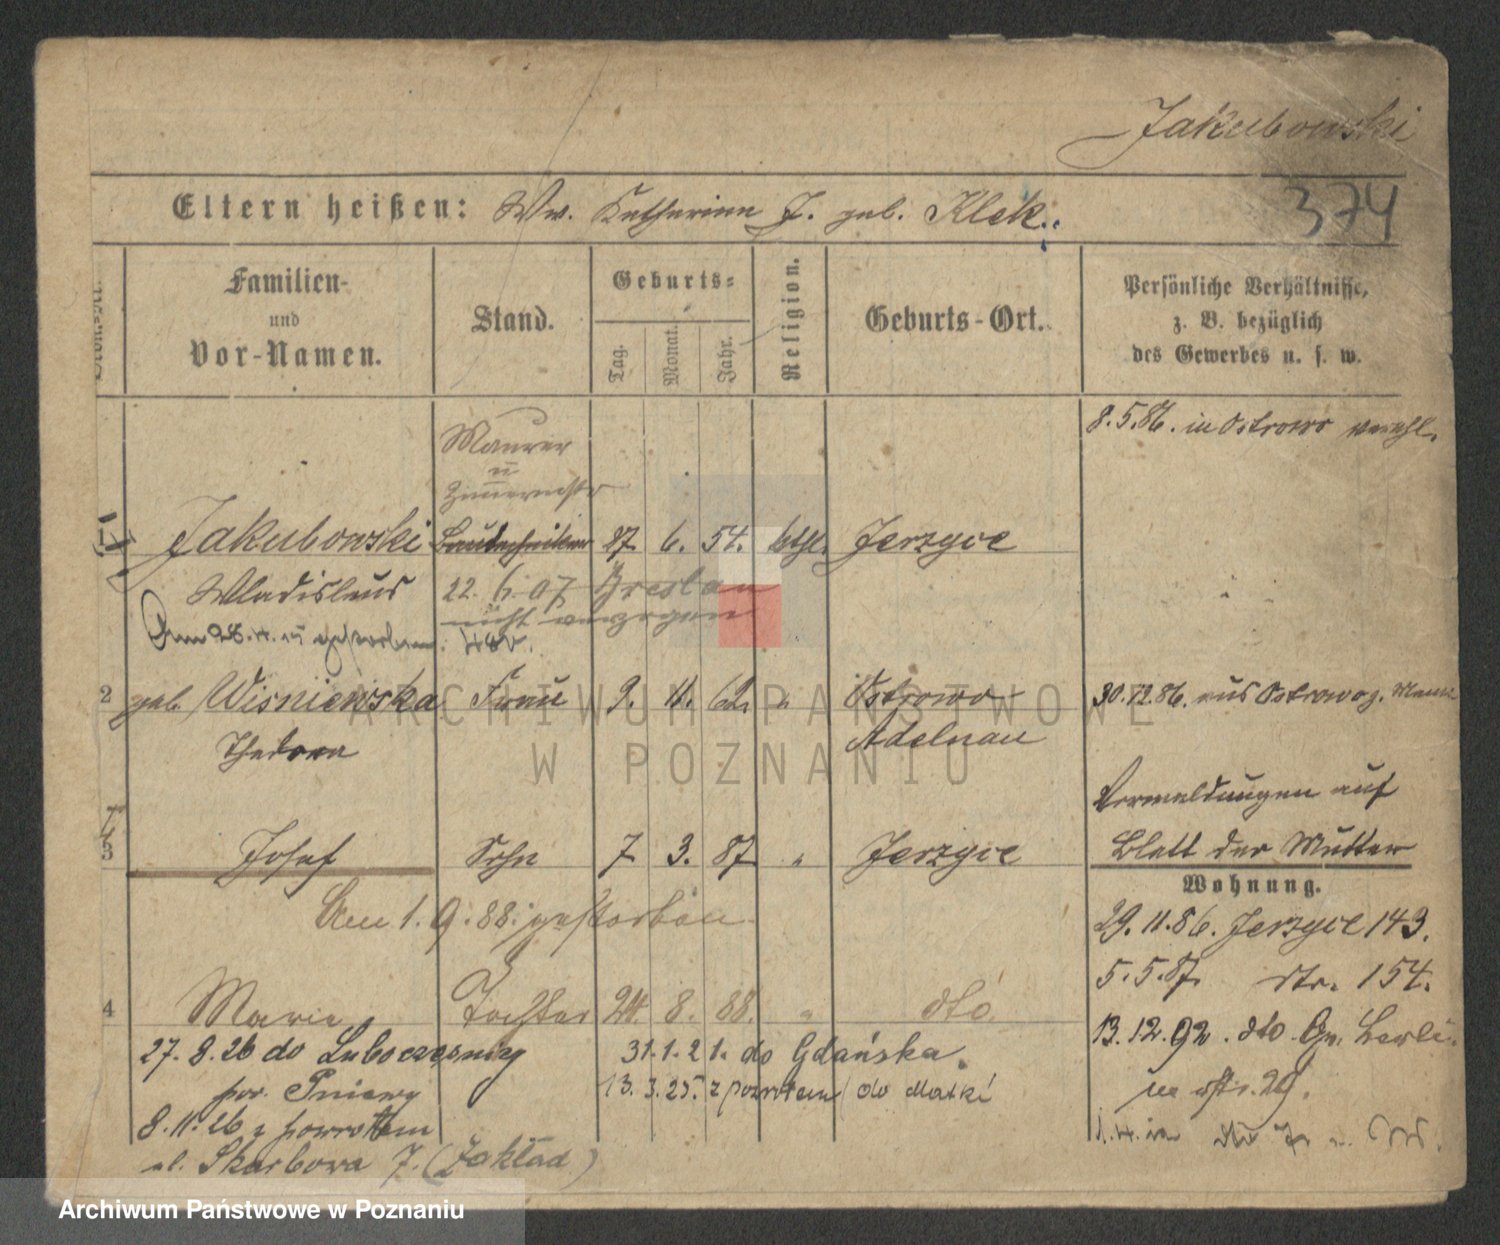 Jakubowski
374
Eltern heißen: Ww. Katharina J. geb. Klek.
Familien-
und
Vor-Namen.
Stand.
Geburts-
Tag. Monat. Jahr.
Religion.
Geburts-Ort.
Persönliche Verhältnisse,
z. B. bezüglich
des Gewerbes u. s. w.
8.5.86. in Ostrowo verehl.
Maurer
u
Zimmermstr
1 Jakubowski Bautechniker 27. 6. 54. kthl. Jerzyce
Wladislaus 22. 6. 07 Breslau
nicht verzogen
Am 28.4.15 gestorben.
2 geb. Wisniewska Frau 9. 11. 62. " Ostrowo 30.12.86. aus Ostrowo z. Mann
Thedora Adelnau
Vermeldungen auf
3 Josef Sohn 7 3. 87 " Jerzyce Blatt der Mutter
Wohnung.
Am 1. 9. 88. gestorben
29. 11. 86. Jerzyce 143.
5. 5. 87. dto. 154.
4 Marie Tochter 24. 8. 88. " dto
13. 12. 92. dto Gr. Berli-
ner str. 29.
27. 8. 26 do Lubocześnicy 31. 1. 21. do Gdańska.
pow. Pniewy 13. 3. 25. z powrotem do Matki
8. 11. 26 z powrotem
ul. Skarbowa 7. (Zakład)
ARCHIWUM PAŃSTWOWE
W POZNANIU
Archiwum Państwowe w Poznaniu